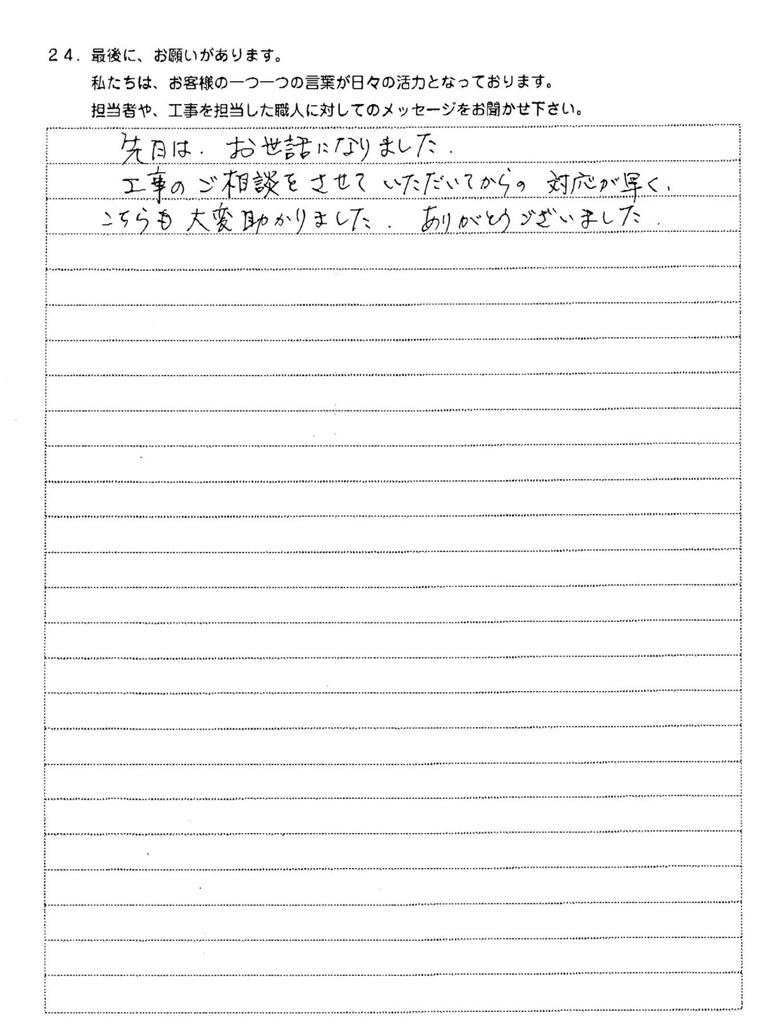 24. 最後に、お願いがあります。
私たちは、お客様の一つ一つの言葉が日々の活力となっております。
担当者や、工事を担当した職人に対してのメッセージをお聞かせ下さい。
先日は、お世話になりました.
工事のご相談をさせていただいてからの対応が早く、
こちらも大変助かりました. ありがとうございました.